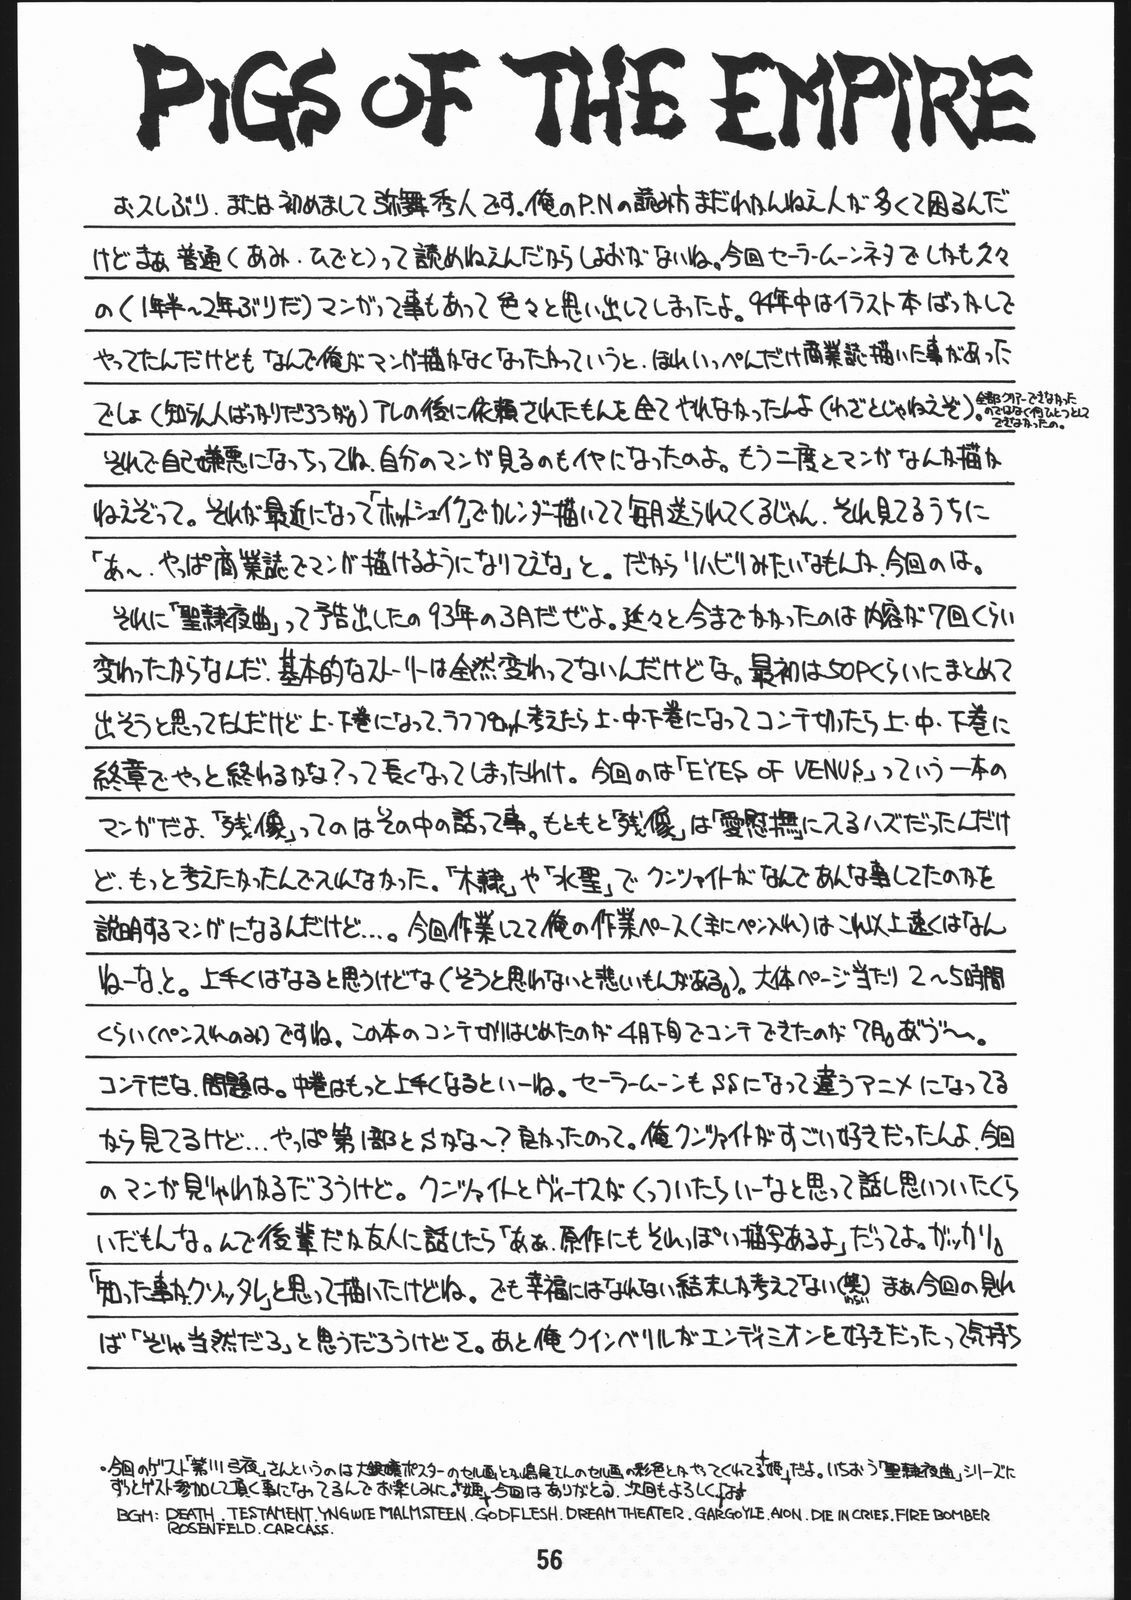 PiGS OF THE EMPIRE
おスしぶり、または初めまして弥舞秀人です。俺のP.Nの読み方まだわかんねえ人が多くて困るんだ
けどまぁ普通(あみ・ひでと)って読めねえんだからしょおがないね。今回セーラームーンネタでしかも久々
の(1年半〜2年ぶりだ)マンガって事もあって色々と思い出してしまったよ。94年中はイラスト本ばっかしで
やってたんだけどもなんで俺がマンガ描かなくなったかっていうと、ほれいっぺんだけ商業誌描いた事があった
でしょ(知らん人ばっかりだろうが。)アレの後に依頼されたもんを全てやれなかったんよ(わざとじゃねえぞ)。
全部クリアーできなかった
のではなく何ひとつとして
できなかったの。
それで自己嫌悪になっちってね、自分のマンガ見るのもイヤになったのよ。もう二度とマンガなんか描か
ねえぞって。それが最近になって「ホットシェイク」でカレンダー描いてて毎月送られてくるじゃん、それ見てるうちに
「あ〜、やっぱ商業誌でマンガ描けるようになりてえな」と。だからリハビリみたいなもんか、今回のは。
それに「聖隷夜曲」って予告出したの93年の3月だぜよ。延々と今までかかったのは内容が7回くらい
変わったからなんだ、基本的なストーリーは全然変わってないんだけどな。最初は50Pくらいにまとめて
出そうと思ってたんだけど上・下巻になって、ラフプロット考えたら上・中・下巻になってコンテ切ったら上・中・下巻に
終章でやっと終わるかな?って長くなってしまったわけ。今回のは「EYES OF VENUS」っていう一本の
マンガだよ、「残像」ってのはその中の話って事。もともと「残像」は「愛慰撫」に入るハズだったんだけ
ど、もっと考えたかったんで入れなかった。「木隷」や「水聖」でクンツァイトがなんであんな事してたのかを
説明するマンガになるんだけど…。今回作業してて俺の作業ペース(主にペン入れ)はこれ以上速くはなん
ねーな、と。上手くはなると思うけどな(そうと思わないと悲しいもんがある。)。大体ページ当たり2〜5時間
くらい(ペン入れのみ)ですね。この本のコンテ切りはじめたのが4月下旬でコンテできたのが7月。あ゛う゛〜。
コンテだな、問題は。中巻はもっと上手くなるといーね。セーラームーンもSSになって違うアニメになってる
から見てるけど…やっぱ第1部とSかな〜?良かったのって。俺クンツァイトがすごい好きだったんよ、今回
のマンガ見りゃわかるだろうけど。クンツァイトとヴィーナスがくっついたらいーなと思って話し思いついたくら
いだもんな。んで後輩だか友人に話したら「あぁ、原作にもそれっぽい描写あるよ」だってよ。ガッカリ。
「知った事か、クソッタレ」と思って描いたけどね。でも幸福にはなれない結末しか考えてない(笑)まぁ今回の見れ
わらい
ば「そりゃ当然だろ」と思うだろうけどさ。あと俺クインベリルがエンディミオンを好きだったって気持ち
・今回のゲスト「紫川弓夜」さんというのは大銀嬢ポスターのセル画とか島尾さんのセル画の彩色とかやってくれてる"姫"だよ。いちおう「聖隷夜曲」シリーズに
ずっとゲスト参加して頂く事になってるんでお楽しみに。"姫"今回はありがとう、次回もよろしくです
BGM: DEATH. TESTAMENT. YNGWIE MALMSTEEN. GODFLESH. DREAM THEATER. GARGOYLE. AION. DIE IN CRIES. FIRE BOMBER
ROSENFELD. CARCASS.
56